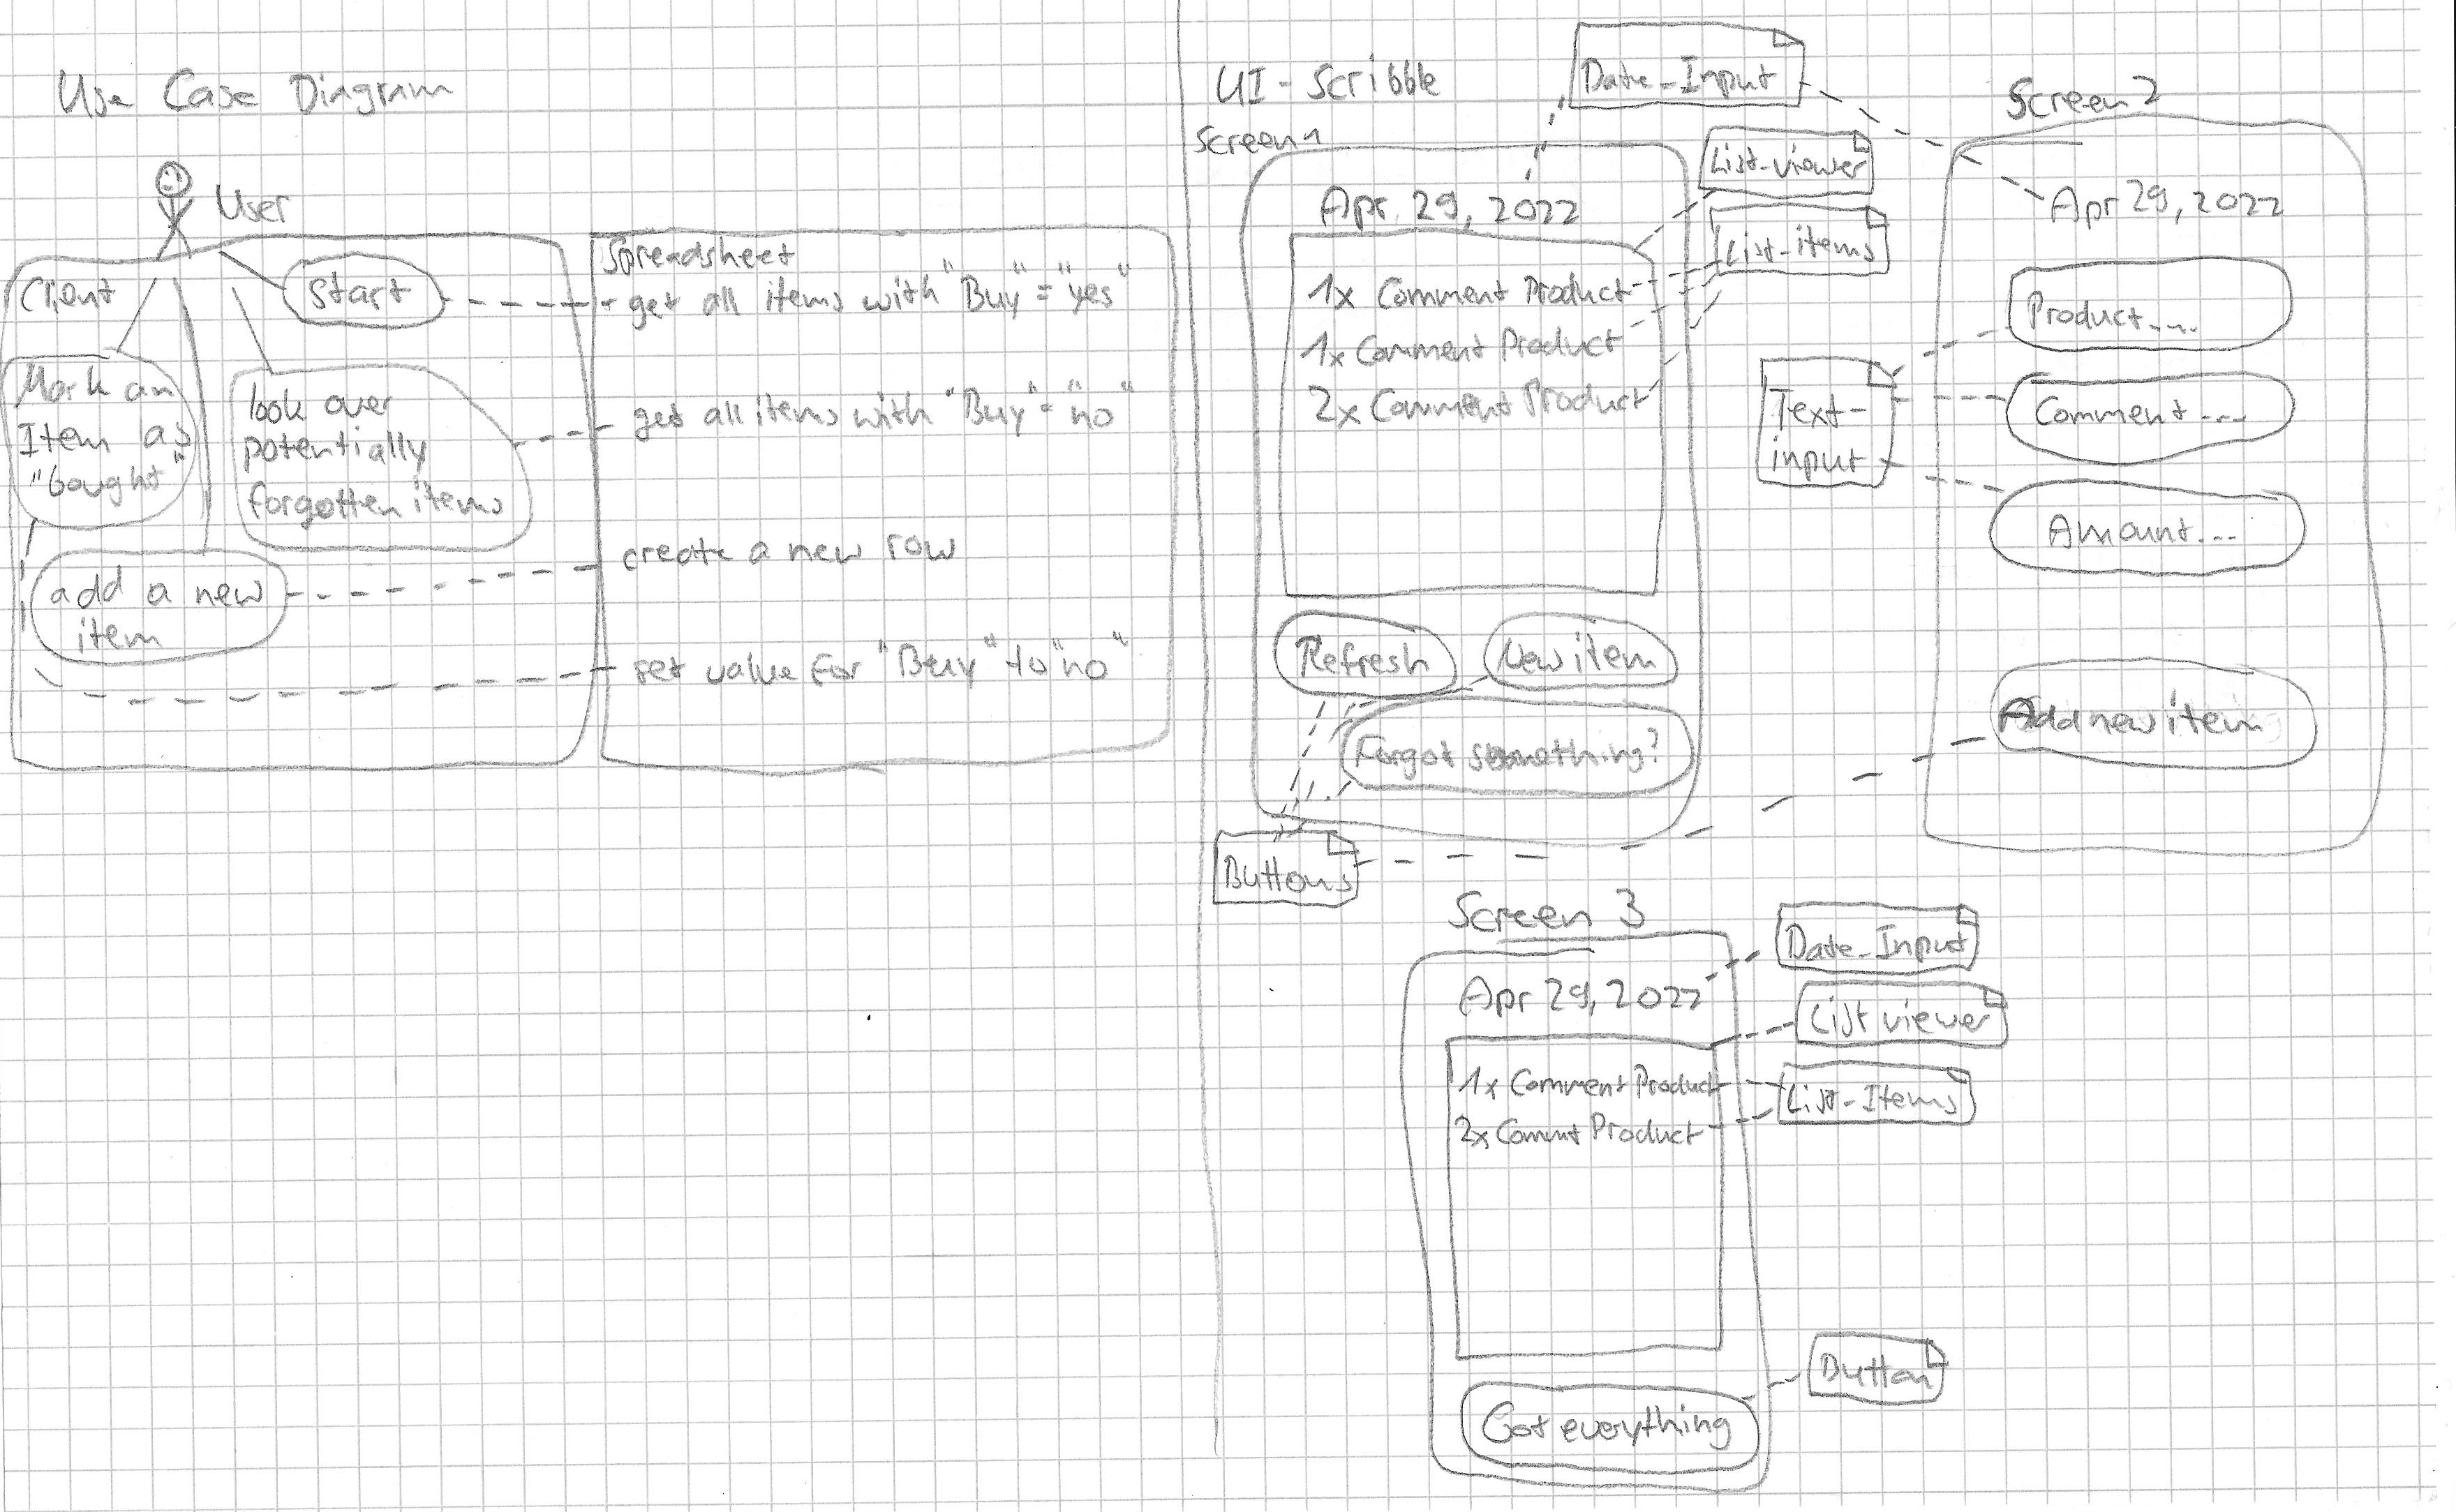 Use Case Diagram
User
Client
Start
Mark an
Item as
"bought"
look over
potentially
forgotten items
add a new
item
Spreadsheet
get all items with "Buy"="yes"
get all items with "Buy"="no"
create a new row
set value for "Buy" to "no"
UI-Scribble
Date_Input
Screen 1
List-viewer
List-items
Apr 29, 2022
1x Comment Product
1x Comment Product
2x Comment Product
Refresh
New item
Forgot something?
Buttons
Screen 2
Apr 29, 2022
Product....
Text-
input
Comment...
Amount...
Add new item
Screen 3
Date_Input
Apr 29, 2022
List viewer
1x Comment Product
List-Items
2x Commt Product
Button
Got everything